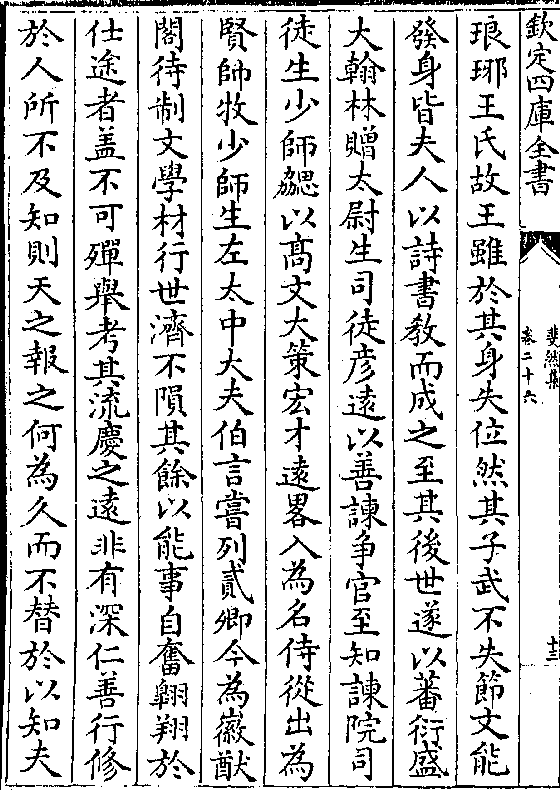 欽定四庫全書
斐然集
卷二十六
十三
琅琊王氏故王雖於其身失位然其子武不失節文能
發身皆夫人以詩書教而成之至其後世遂以蕃衍盛
大翰林贈太尉生司徒彥遠以善諫争官至知諫院司
徒生少師勰以髙文大策宏才遠畧入為名侍從出為
賢師牧少師生左太中大夫伯言嘗列貳卿今為徽猷
閣待制文學材行世濟不隕其餘以能事自奮翺翔於
仕途者盖不可殫舉考其流慶之遠非有深仁善行修
於人所不及知則天之報之何為久而不替於以知夫